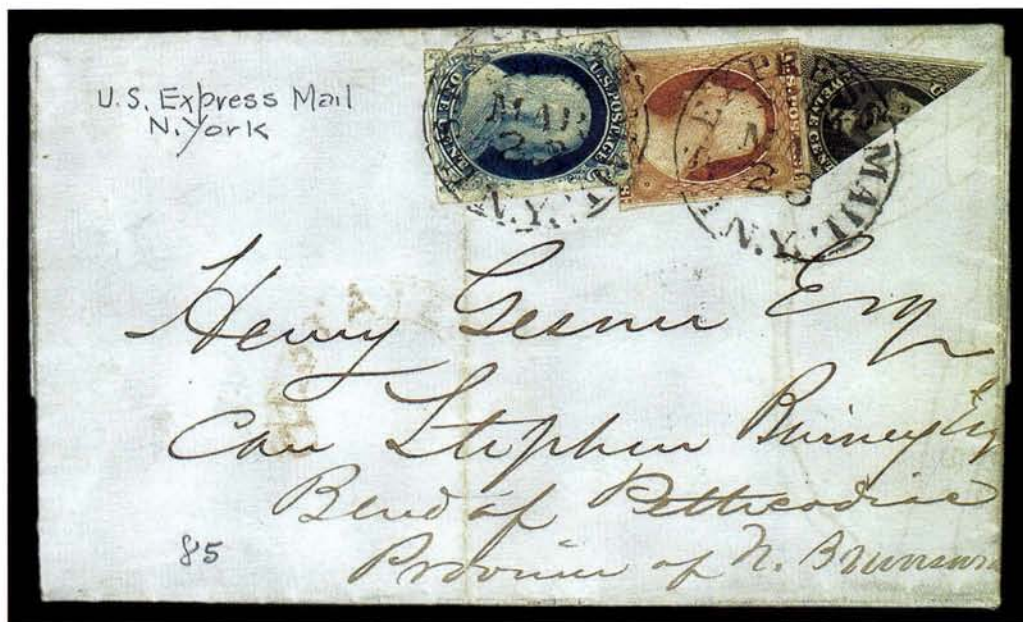 U.S. Express Mail
N. York
U.S. POSTAGE
ONE CENT
MAR
N.Y.
EXPRESS MAIL
N.Y.
Henry Gesner Esq
Care Stephen Binney Esq
Bend of Petticodiac
Province of N. Brunswi
85